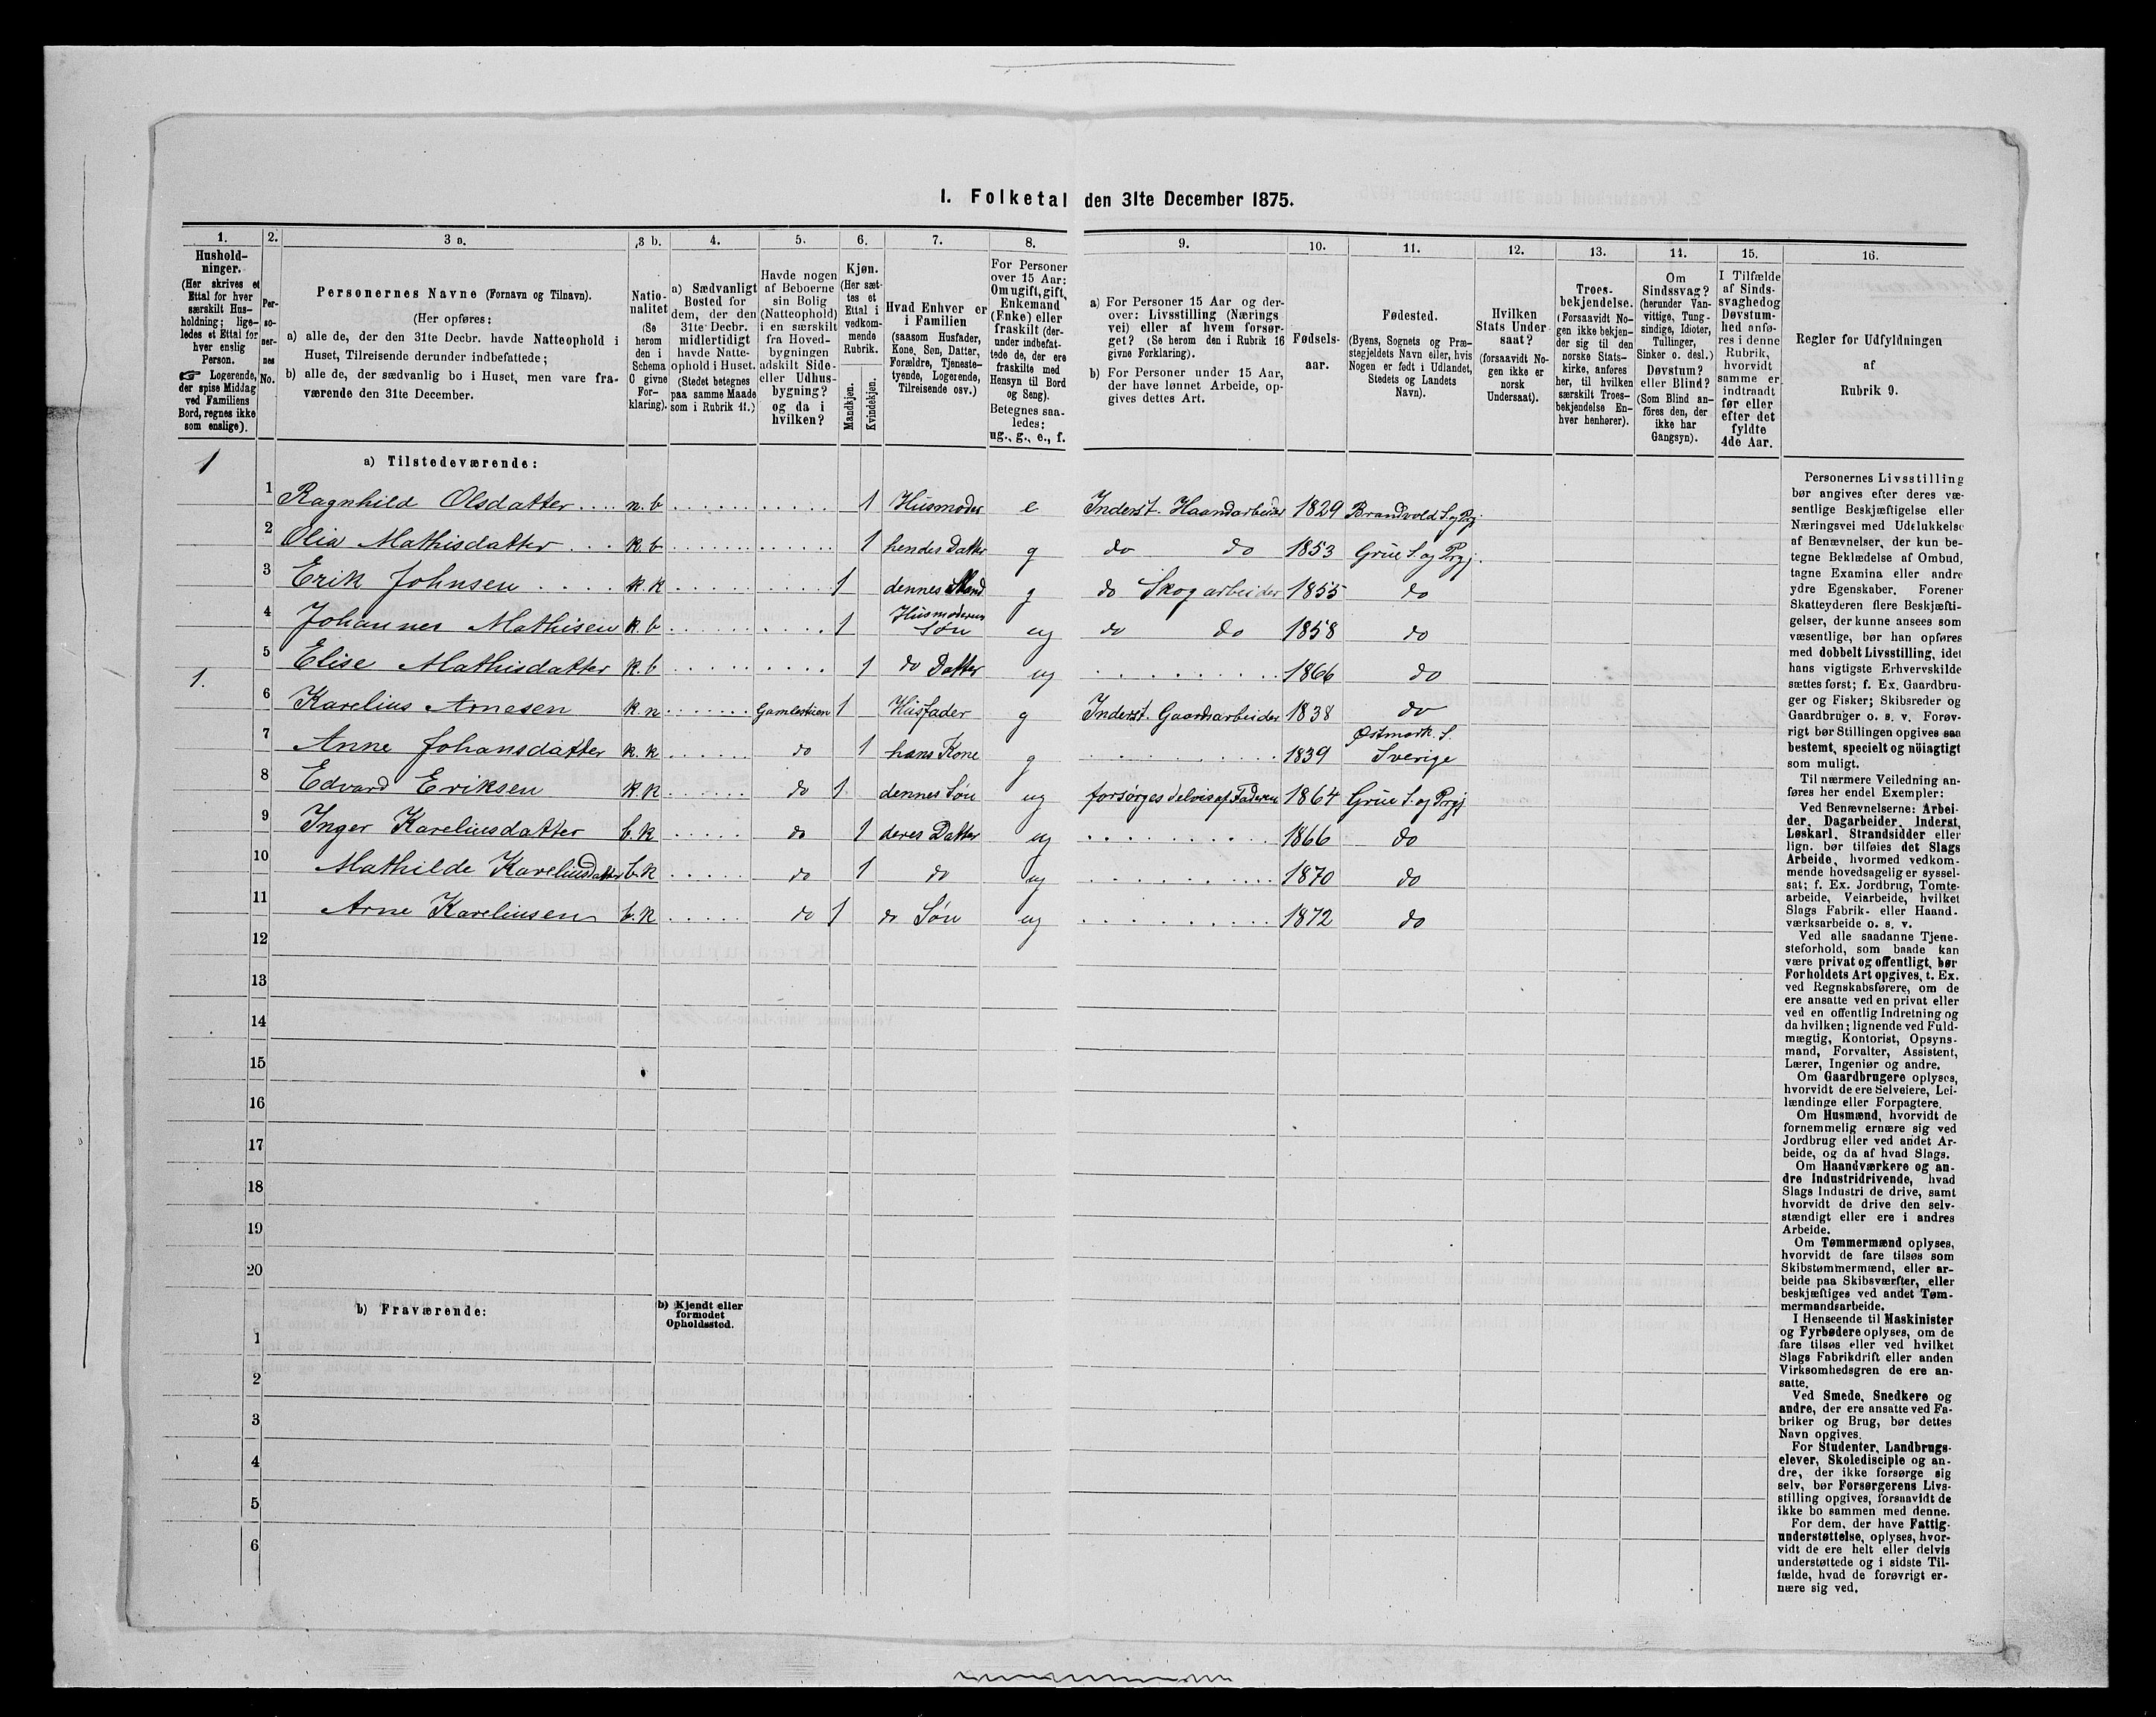 I. Folketal den 31te December 1875.
1. 2. 3 a. 3 b. 4. 5. 6. 7. 8. 9. 10. 11. 12. 13. 14. 15. 16.
Hushold-
ninger.
(Her skrives et
Ettal for hver
særskilt Hus-
holdning; lige-
ledes et Ettal for
hver enslig
Person.
☞ Logerende,
der spise Middag
ved Familiens
Bord, regnes ikke
som enslige).
Per-
so-
ner-
nes
No.
Personernes Navne (Fornavn og Tilnavn).
(Her opføres:
a) alle de, der den 31te Decbr. havde Natteophold i
Huset, Tilreisende derunder indbefattede;
b) alle de, der sædvanlig bo i Huset, men vare fra-
værende den 31te December.
Natio-
nalitet
(Se
herom
den i
Schema
O givne
For-
klaring).
a) Sædvanligt
Bosted for
dem, der den
31te Decbr.
midlertidigt
havde Natte-
ophold i Huset.
(Stedet betegnes
paa samme Maade
som i Rubrik 11.)
Havde nogen
af Beboerne
sin Bolig
(Natteophold)
i en særskilt
fra Hoved-
bygningen
adskilt Side-
eller Udhus-
bygning?
og da i
hvilken?
Kjøn.
(Her sæt-
tes et
Ettal i
vedkom-
mende
Rubrik.
Mandkjøn.
Kvindekjøn.
Hvad Enhver er
i Familien
(saasom Husfader,
Kone, Søn, Datter,
Forældre, Tjeneste-
tyende, Logerende,
Tilreisende osv.)
For Personer
over 15 Aar:
Om ugift, gift,
Enkemand
(Enke) eller
fraskilt (der-
under indbefat-
tede de, der ere
fraskilte med
Hensyn til Bord
og Seng).
Betegnes saa-
ledes:
ug., g., e., f.
a) For Personer 15 Aar og der-
over: Livsstilling (Nærings
vei) eller af hvem forsør-
get? (Se herom den i Rubrik 16
givne Forklaring).
b) For Personer under 15 Aar,
der have lønnet Arbeide, op-
gives dettes Art.
Fødsels-
aar.
Fødested.
(Byens, Sognets og Præ-
stegjeldets Navn eller, hvis
Nogen er født i Udlandet,
Stedets og Landets
Navn).
Hvilken
Stats Under
saat?
(forsaavidt No-
gen ikke er
norsk
Undersaat).
Troes-
bekjendelse.
(Forsaavidt No-
gen ikke bekjen-
der sig til den
norske Stats-
kirke, anføres
her, til hvilken
særskilt Troes-
bekjendelse En-
hver henhører).
Om
Sindssvag?
(herunder Van-
vittige, Tung-
sindige, Idioter,
Tullinger,
Sinker o. desl.)
Døvstum?
eller Blind?
(Som Blind an-
föres den, der
ikke har
Gangsyn).
I Tilfælde
af Sinds-
svaghed og
Døvstum-
hed anfø-
res i denne
Rubrik,
hvorvidt
samme er
indtraadt
før eller
efter det
fyldte
4de Aar.
Regler for Udfyldningen
af
Rubrik 9.
a) Tilstedeværende:
1 1 Ragnhild Olsdatter n.b 1 Husmoder e Inderst. Haandarbeider 1829 Brandvold S. og Prgj.
2 Olia Mathisdatter k.b 1 hendes Datter g do do 1853 Grue S. og Prgj.
3 Erik Johnsen k.k 1 dennes Mand g do Skogarbeider 1855 do
4 Johannes Mathisen k.b 1 Husmoderens Søn ug do do 1858 do
5 Elise Mathisdatter k.b 1 do Datter ug 1866 do
1. 6 Karelius Arnesen k.n Gamlestuen 1 Husfader g Inderst. Gaardsarbeider 1838 do
7 Anne Johansdatter k.k do 1 hans Kone g 1839 Østmark S. Sverige
8 Edvard Eriksen k.k do 1 dennes Søn ug forsørges delvis af Faderen 1864 Grue S. og Prgj
9 Inger Kareliusdatter b.k do 1 deres Datter ug 1866 do
10 Mathilde Kareliusdatter b.k do 1 do ug 1870 do
11 Arne Kareliusen b.k do 1 do Søn ug 1872 do
12
13
14
15
16
17
18
19
20
b) Fraværende:
b) Kjendt eller
formodet
Opholdssted.
1
2
3
4
5
6
Personernes Livsstilling
bør angives efter deres væ-
sentlige Beskjæftigelse eller
Næringsvei med Udelukkelse
af Benævnelser, der kun be-
tegne Beklædelse af Ombud,
tagne Examina eller andre
ydre Egenskaber. Forener
Skatteyderen flere Beskjæfti-
gelser, der kunne ansees som
væsentlige, bør han opføres
med dobbelt Livsstilling, idet
hans vigtigste Erhvervskilde
sættes først; f. Ex. Gaardbru-
ger og Fisker; Skibsreder og
Gaardbruger o. s. v. Forøv-
rigt bør Stillingen opgives saa
bestemt, specielt og nöiagtigt
som muligt.
Til nærmere Veiledning an-
føres her endel Exempler:
Ved Benævnelserne: Arbei-
der, Dagarbeider, Inderst,
Løskarl, Strandsidder eller
lign. bør tilføies det Slags
Arbeide, hvormed vedkom-
mende hovedsagelig er syssel-
sat; f. Ex. Jordbrug, Tomte-
arbeide, Veiarbeide, hvilket
Slags Fabrik- eller Haand-
værksarbeide o. s. v.
Ved alle saadanne Tjene-
steforhold, som baade kan
være privat og offentligt, bør
Forholdets Art opgives, t. Ex.
ved Regnskabsførere, om de
ere ansatte ved en privat eller
ved en offentlig Indretning og
da hvilken; lignende ved Fuld-
mægtig, Kontorist, Opsyns-
mand, Forvalter, Assistent,
Lærer, Ingeniør og andre.
Om Gaardbrugere oplyses,
hvorvidt de ere Selveiere, Lei-
lændinge eller Forpagtere.
Om Husmænd, hvorvidt de
fornemmelig ernære sig ved
Jordbrug eller ved andet Ar-
beide, og da af hvad Slags.
Om Haandværkere og an-
dre Industridrivende, hvad
Slags Industri de drive, samt
hvorvidt de drive den selv-
stændigt eller ere i andres
Arbeide.
Om Tømmermænd oplyses,
hvorvidt de fare tilsøs som
Skibstømmermænd, eller ar-
beide paa Skibsværfter, eller
beskjæftiges ved andet Tøm-
mermandsarbeide.
I Henseende til Maskinister
og Fyrbødere oplyses, om de
fare tilsøs eller ved hvilket
Slags Fabrikdrift eller anden
Virksomhedsgren de ere an-
satte.
Ved Smede, Snedkere og
andre, der ere ansatte ved Fa-
briker og Brug, bør dettes
Navn opgives.
For Studenter, Landbrugs-
elever, Skoledisciple og an-
dre, der ikke forsørge sig
selv, bør Forsørgerens Livs-
stilling opgives, forsaavidt de
ikke bo sammen med denne.
For dem, der have Fattig-
understøttelse, oplyses, hvor-
vidt de ere helt eller delvis
understøttede og i sidste Til-
fælde, hvad de forøvrigt er-
nære sig ved.